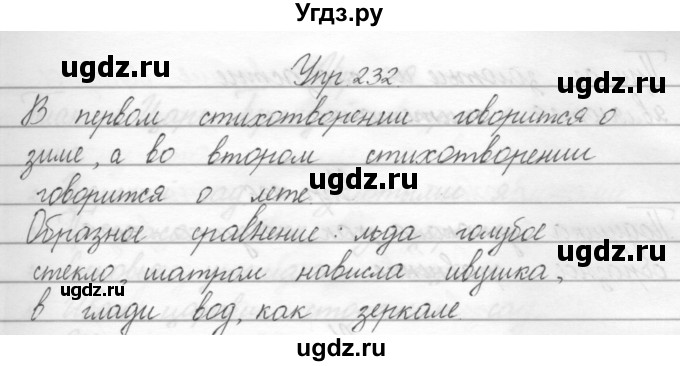 Угдз.ру
ugdz.ru ugdz.ru
Упр 232.
ugdz.ru
В первом стихотворении говорится о
зиме, а во втором стихотворении
ugdz.ru
говорится о лете.
Образное сравнение: льда голубое
стекло, шатром нависла ивушка,
ugdz.ru ugdz.ru
в глади вод, как зеркале
ugdz.ru